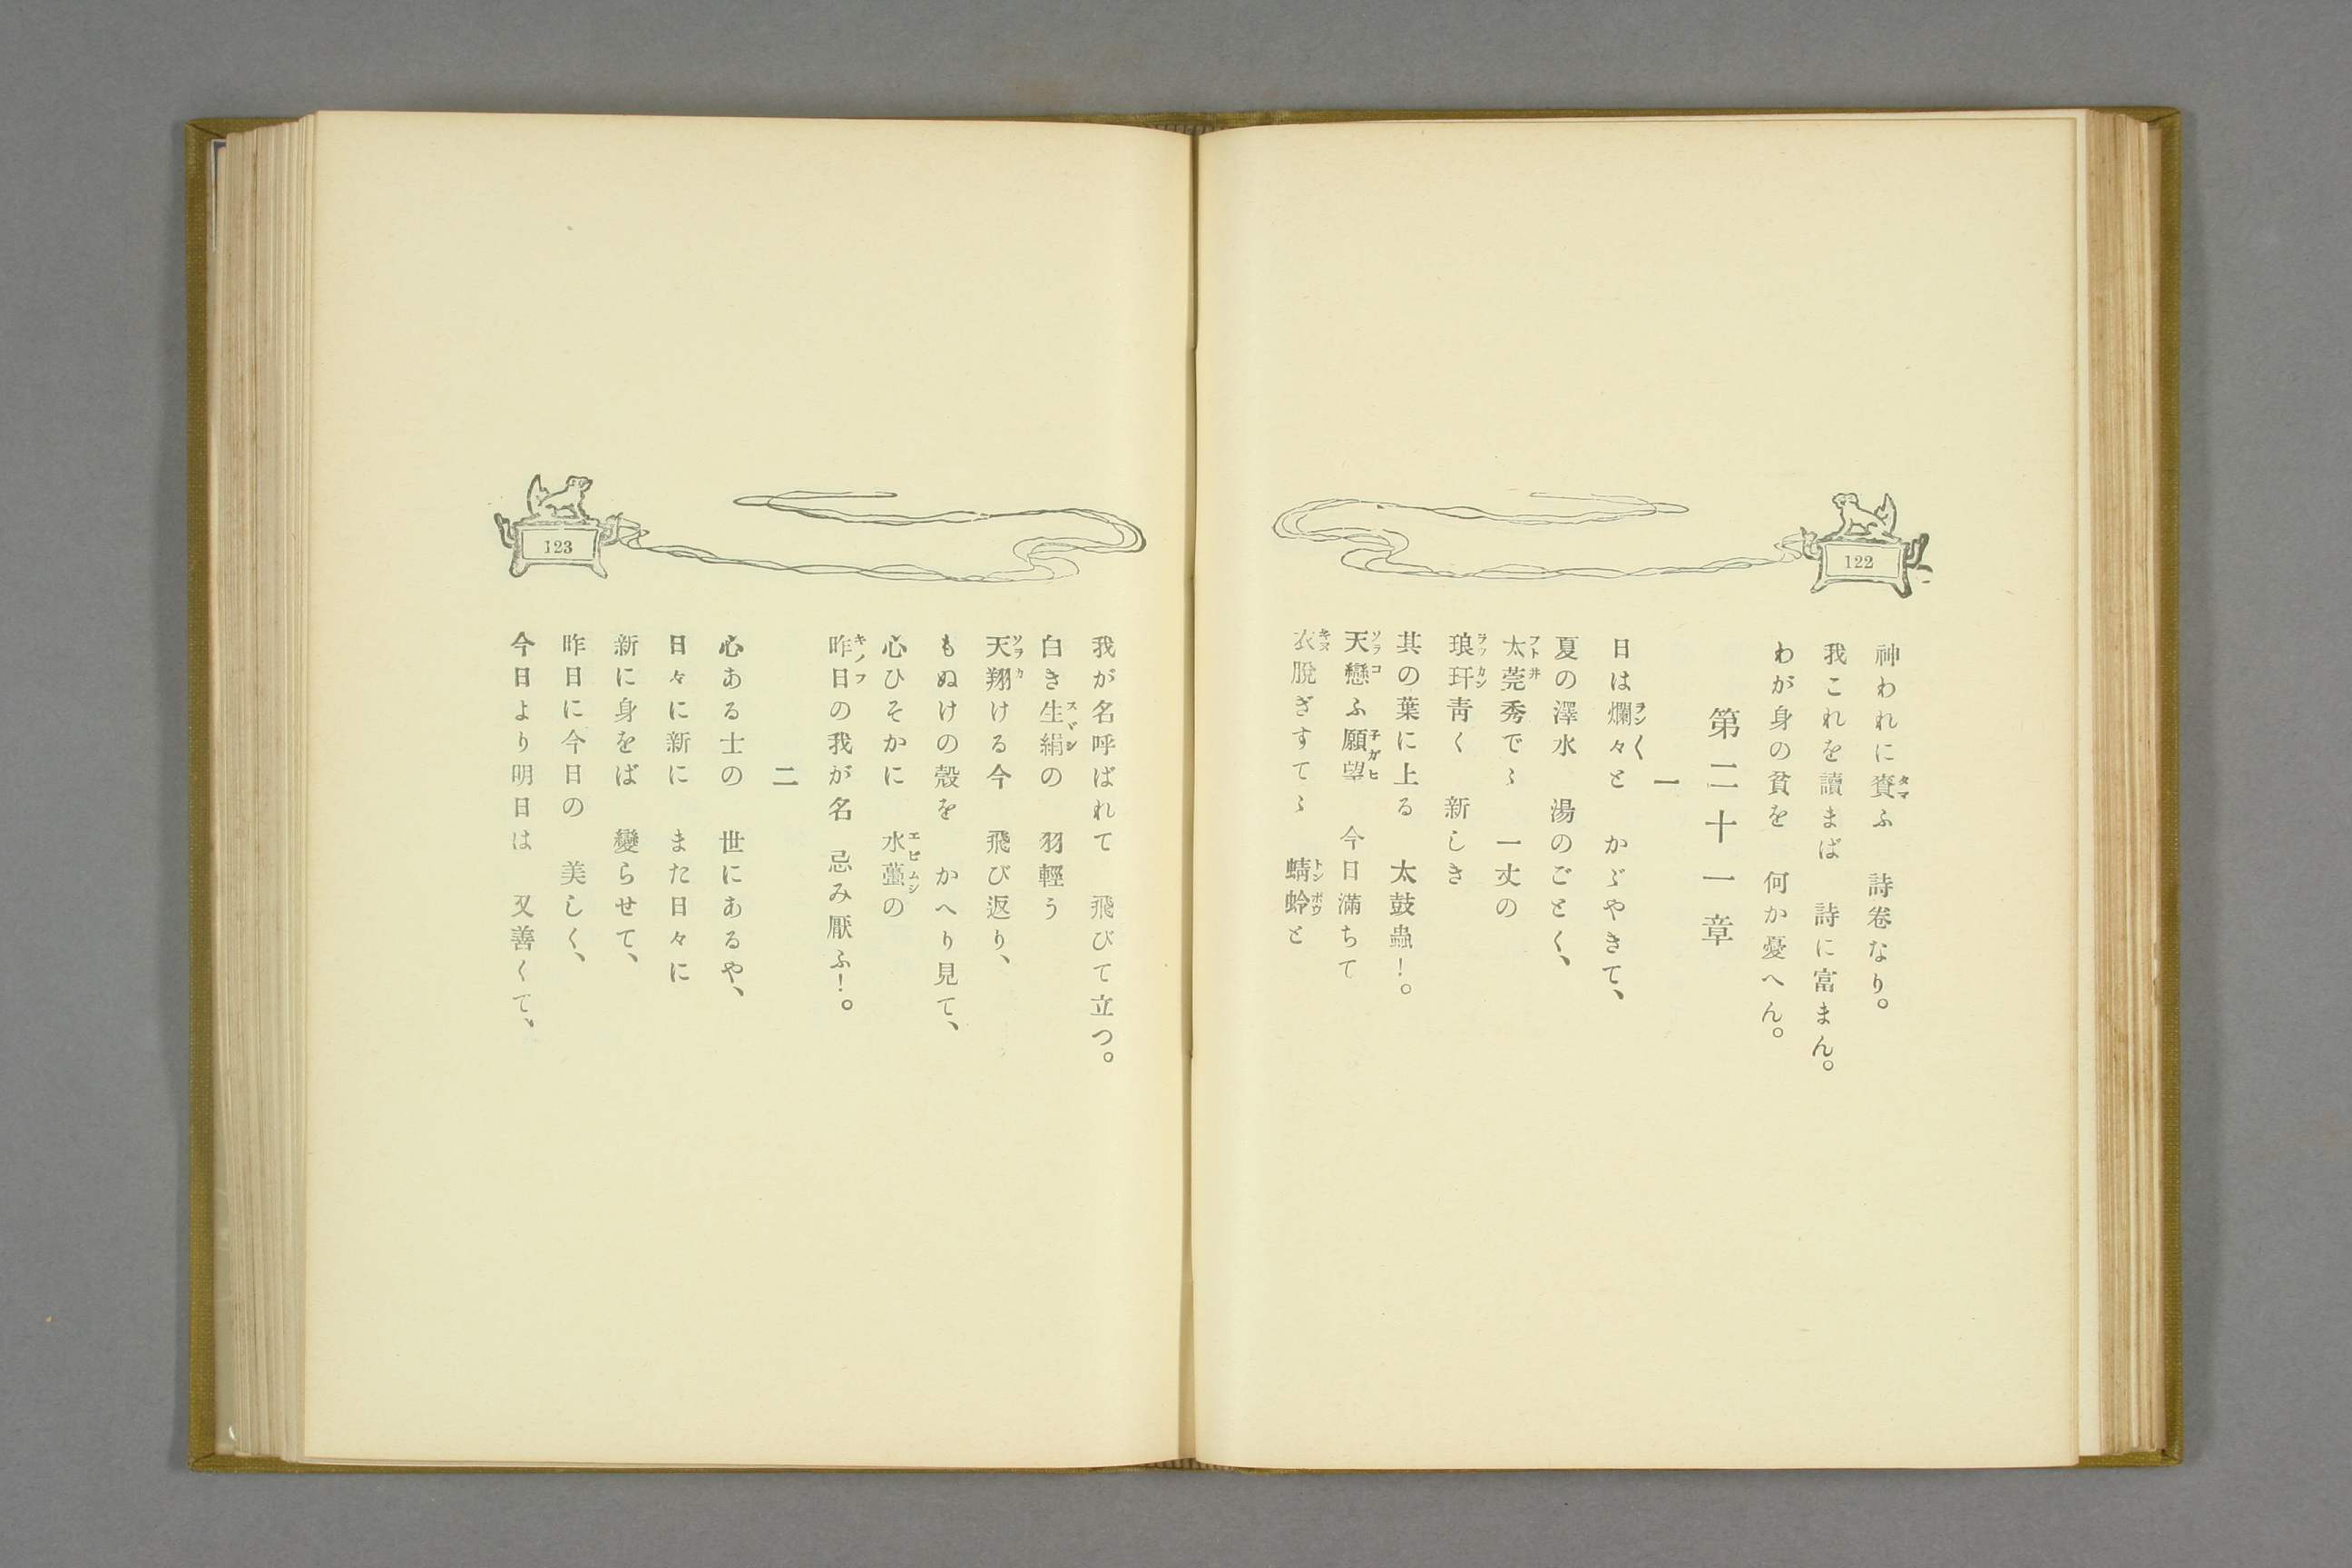 122
神われに賚ふ　詩卷なり。
我これを讀まば　詩に富まん。
わが身の貧を　何か憂へん。
第二十一章
一
日は爛々と　かゞやきて、
夏の澤水　湯のごとく、
太莞秀でゝ　一丈の
琅玕靑く　新しき
其の葉に上る　太鼓蟲！。
天戀ふ願望　今日滿ちて
衣脫ぎすてゝ　蜻蛉と
123
我が名呼ばれて　飛びて立つ。
白き生絹の　羽輕う
天翔ける今　飛び返り、
もぬけの殼を　かへり見て、
心ひそかに　水蠆の
昨日の我が名　忌み厭ふ！。
二
心ある士の　世にあるや、
日々に新に　また日々に
新に身をば　變らせて、
昨日に今日の　美しく、
今日より明日は　又善くて、